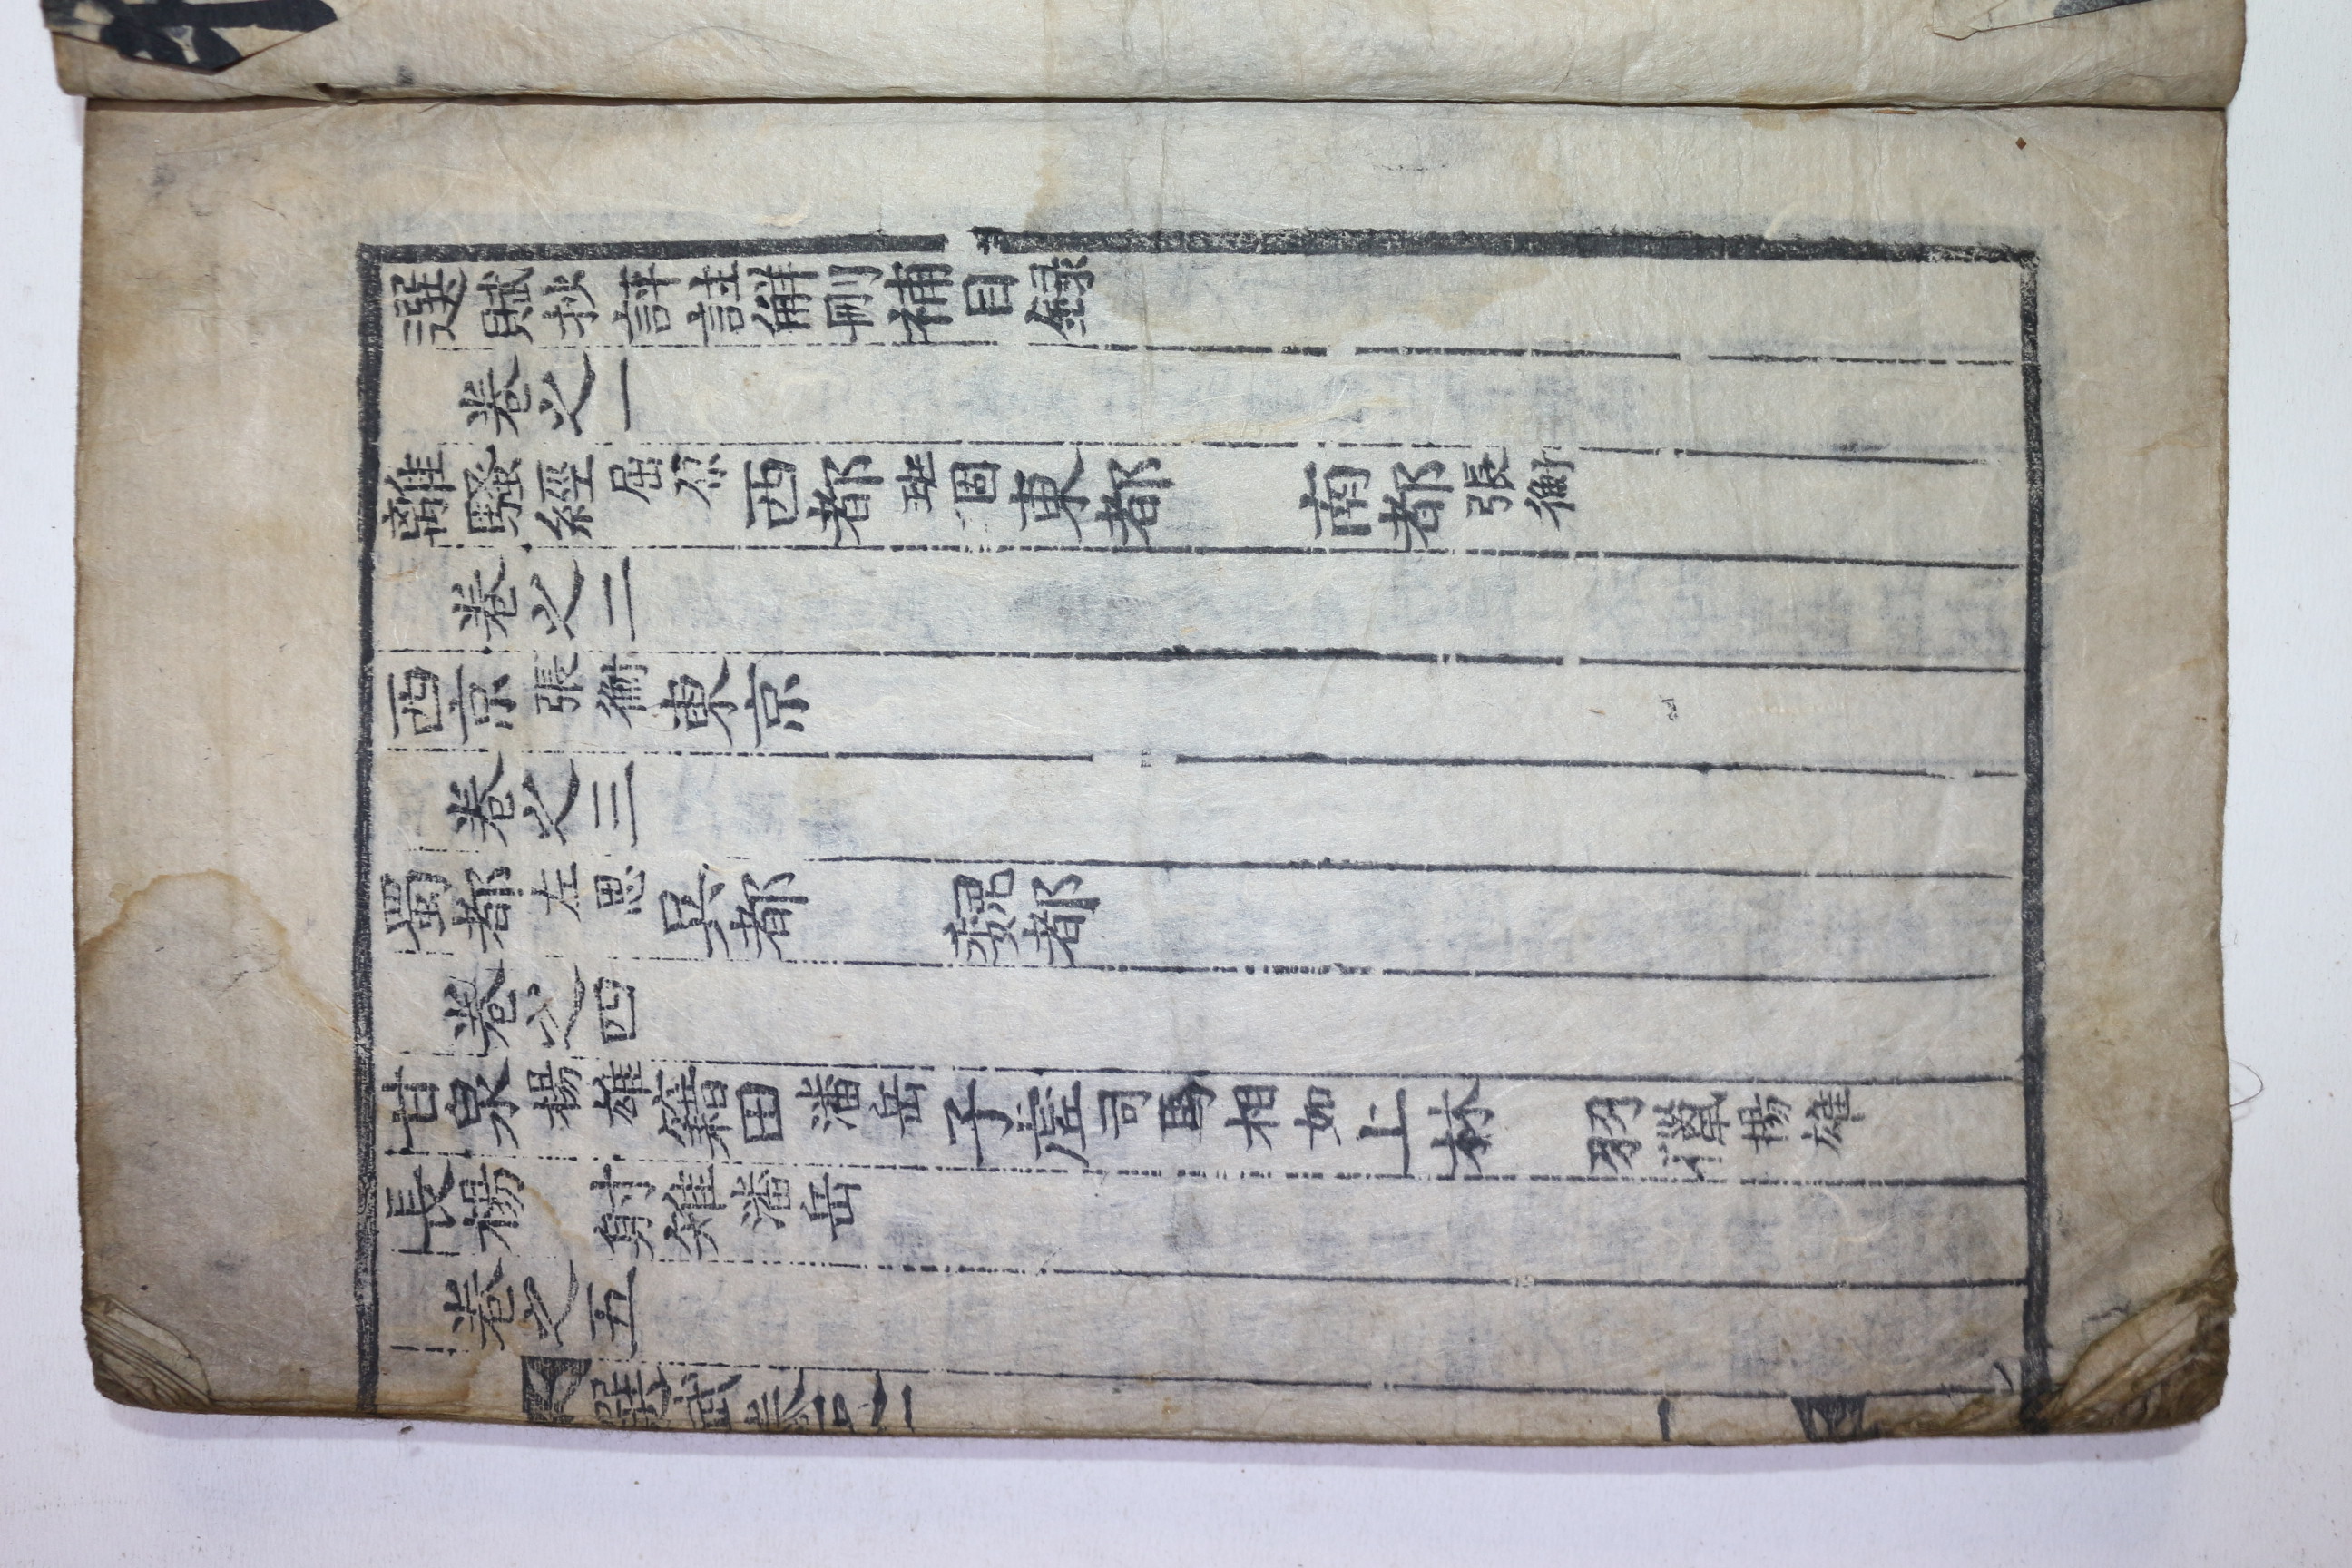 選賦抄評註解刪補目録
卷之一
離騷經 屈原 西都 班固 東都 南都 張衡
卷之二
西京 張衡 東京
卷之三
蜀都 左思 吳都 魏都
卷之四
甘泉 楊雄 籍田 潘岳 子虛 司馬相如 上林 羽獵 揚雄
長楊 射雉 潘岳
卷之五
選賦卷之一